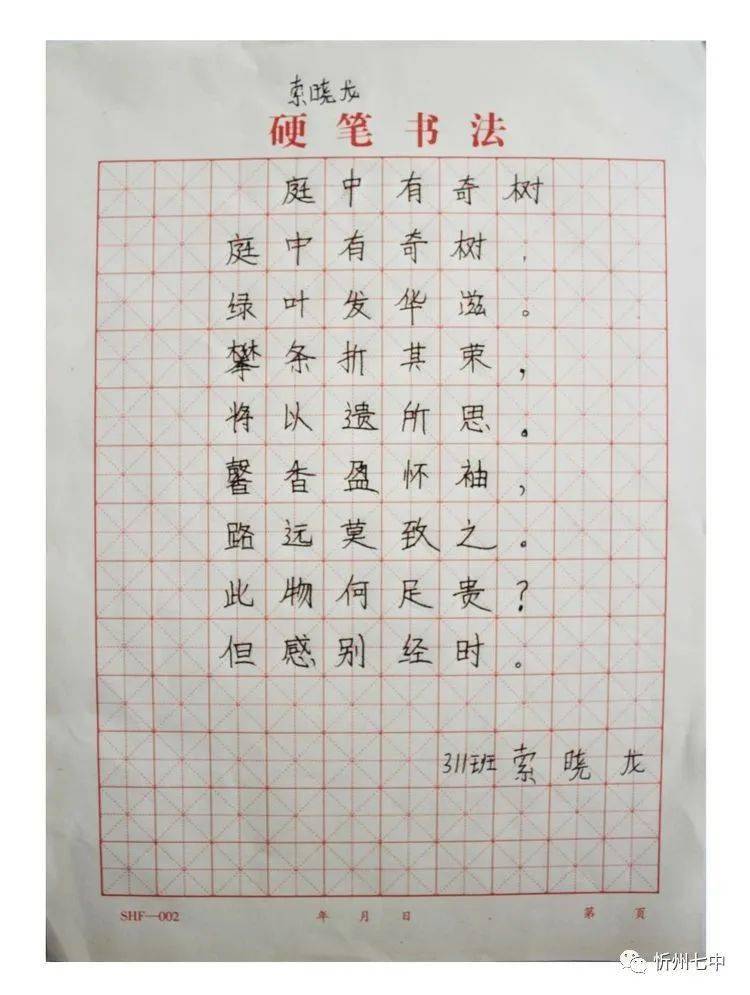 索晓龙
硬笔书法
庭中有奇树
庭中有奇树，
绿叶发华滋。
攀条折其荣，
将以遗所思。
馨香盈怀袖，
路远莫致之。
此物何足贵？
但感别经时。
311班 索晓龙
SHF—002 年 月 日 第 页
忻州七中